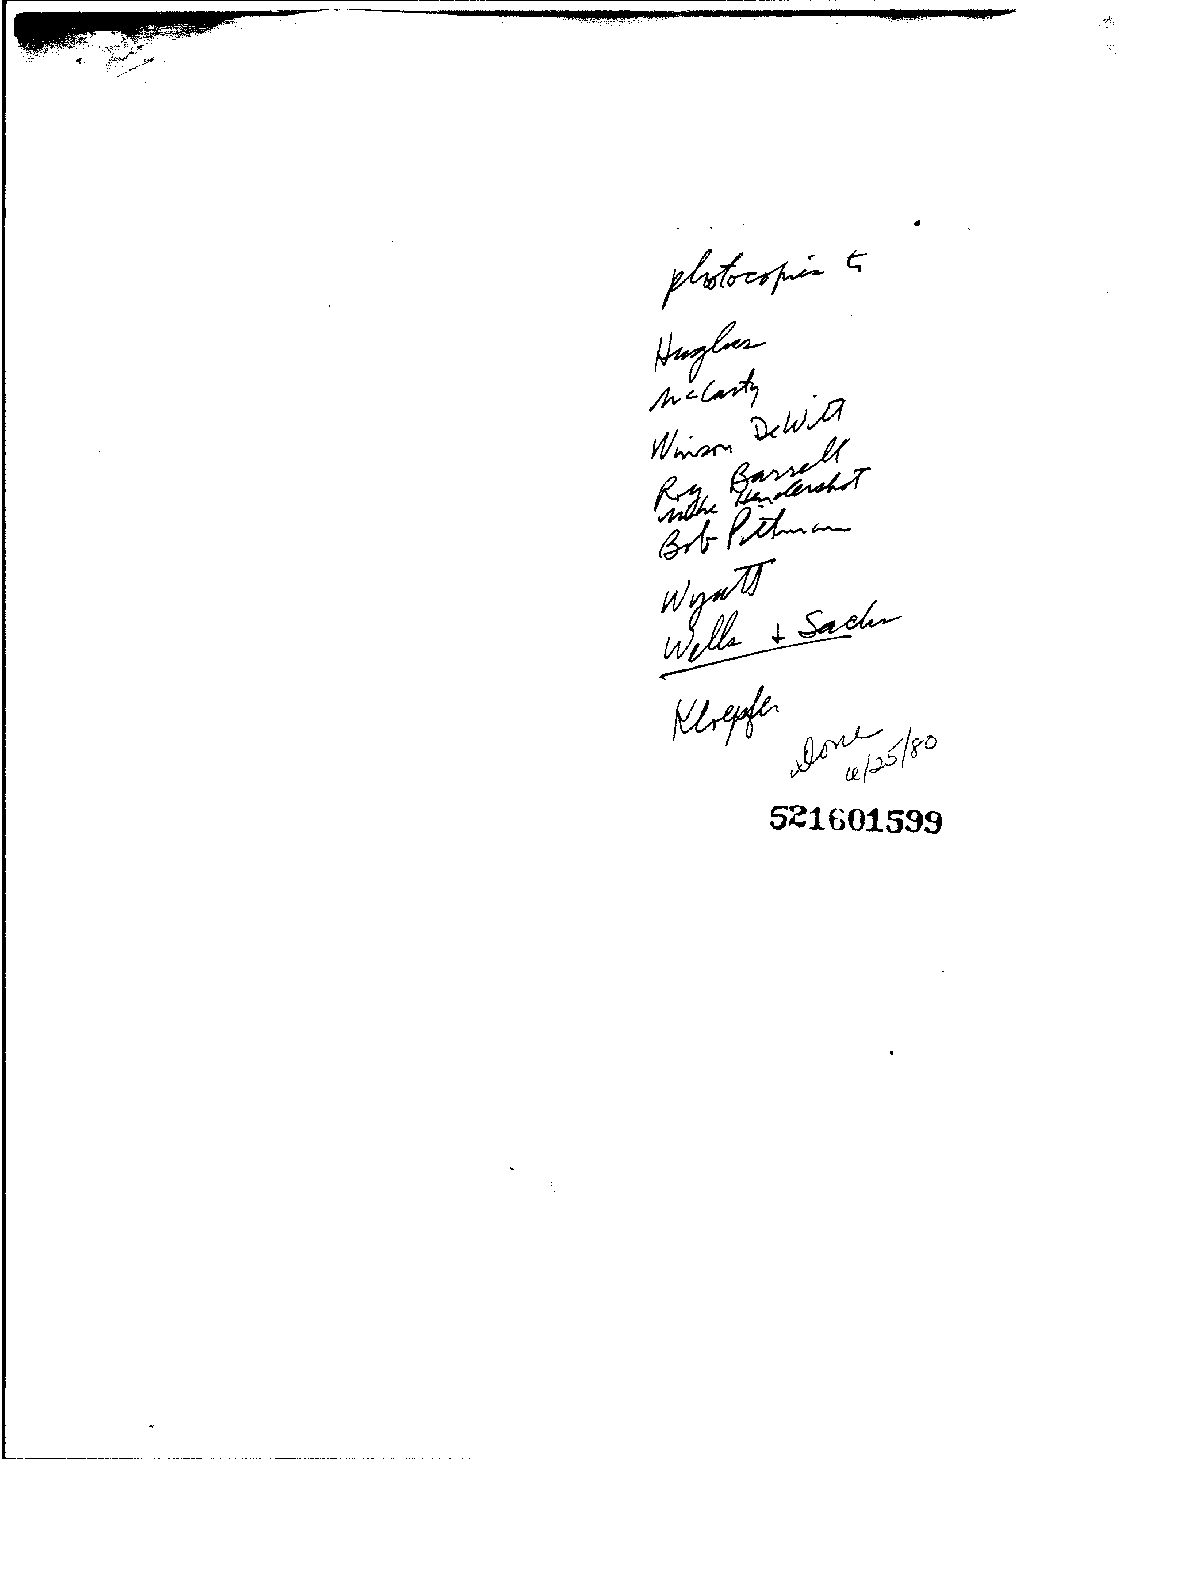 photocopies to
Hughes
McCarty
Winson DeWitt
Roy Barrett
Mike Hendershot
Bob Pittman
Wyatt
Wells + Sachs
Kloepfer
Done
6/25/80
521601599